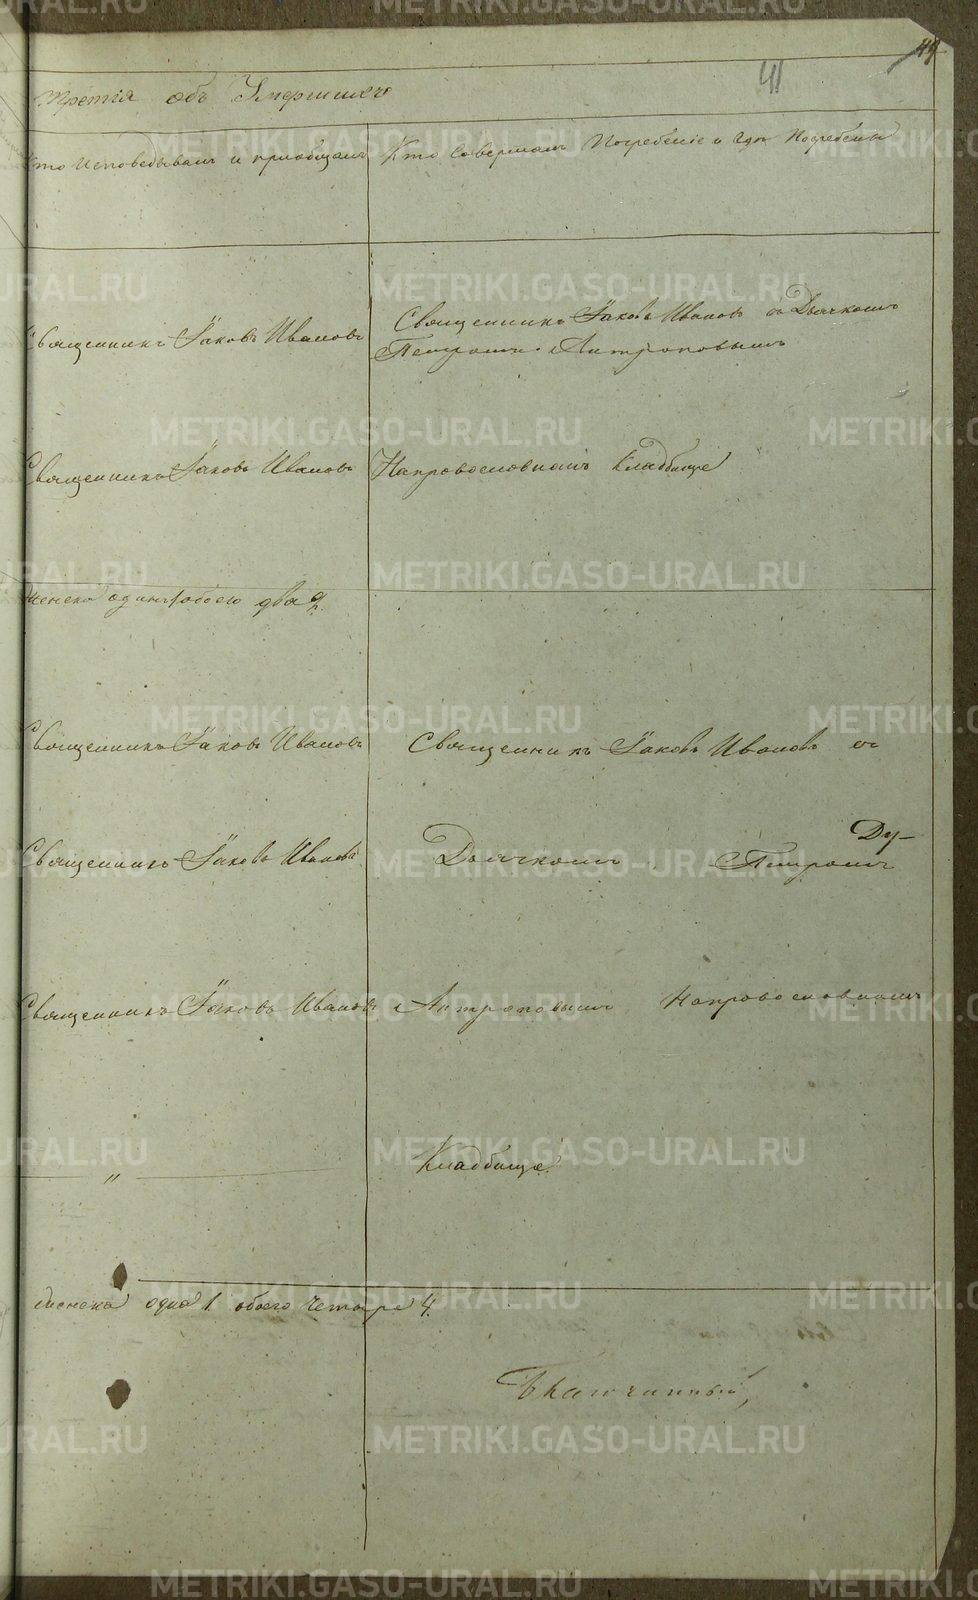 44
41
третiя объ Умершихъ
Кто Исповедывалъ и приобщалъ
Кто Совершалъ Погребенiе и Где Погребены
Священникъ Iаковъ Ивановъ
Священникъ Iаковъ Ивановъ съ Дьячкомъ
Петромъ Антроповымъ
Священникъ Iаковъ Ивановъ
Направославномъ Кладбище
женска одинъ 1 обоего два 2.
Священникъ Iаковъ Ивановъ
Священникъ Iаковъ Ивановъ съ
Священникъ Iаковъ Ивановъ
Дьячкомъ Петромъ
Ду-
Священникъ Iаковъ Ивановъ
Антроповымъ Направославномъ
"
Кладбище
женска одна 1 обоего четыре 4.
Благочинный,
METRIKI.GASO-URAL.RU